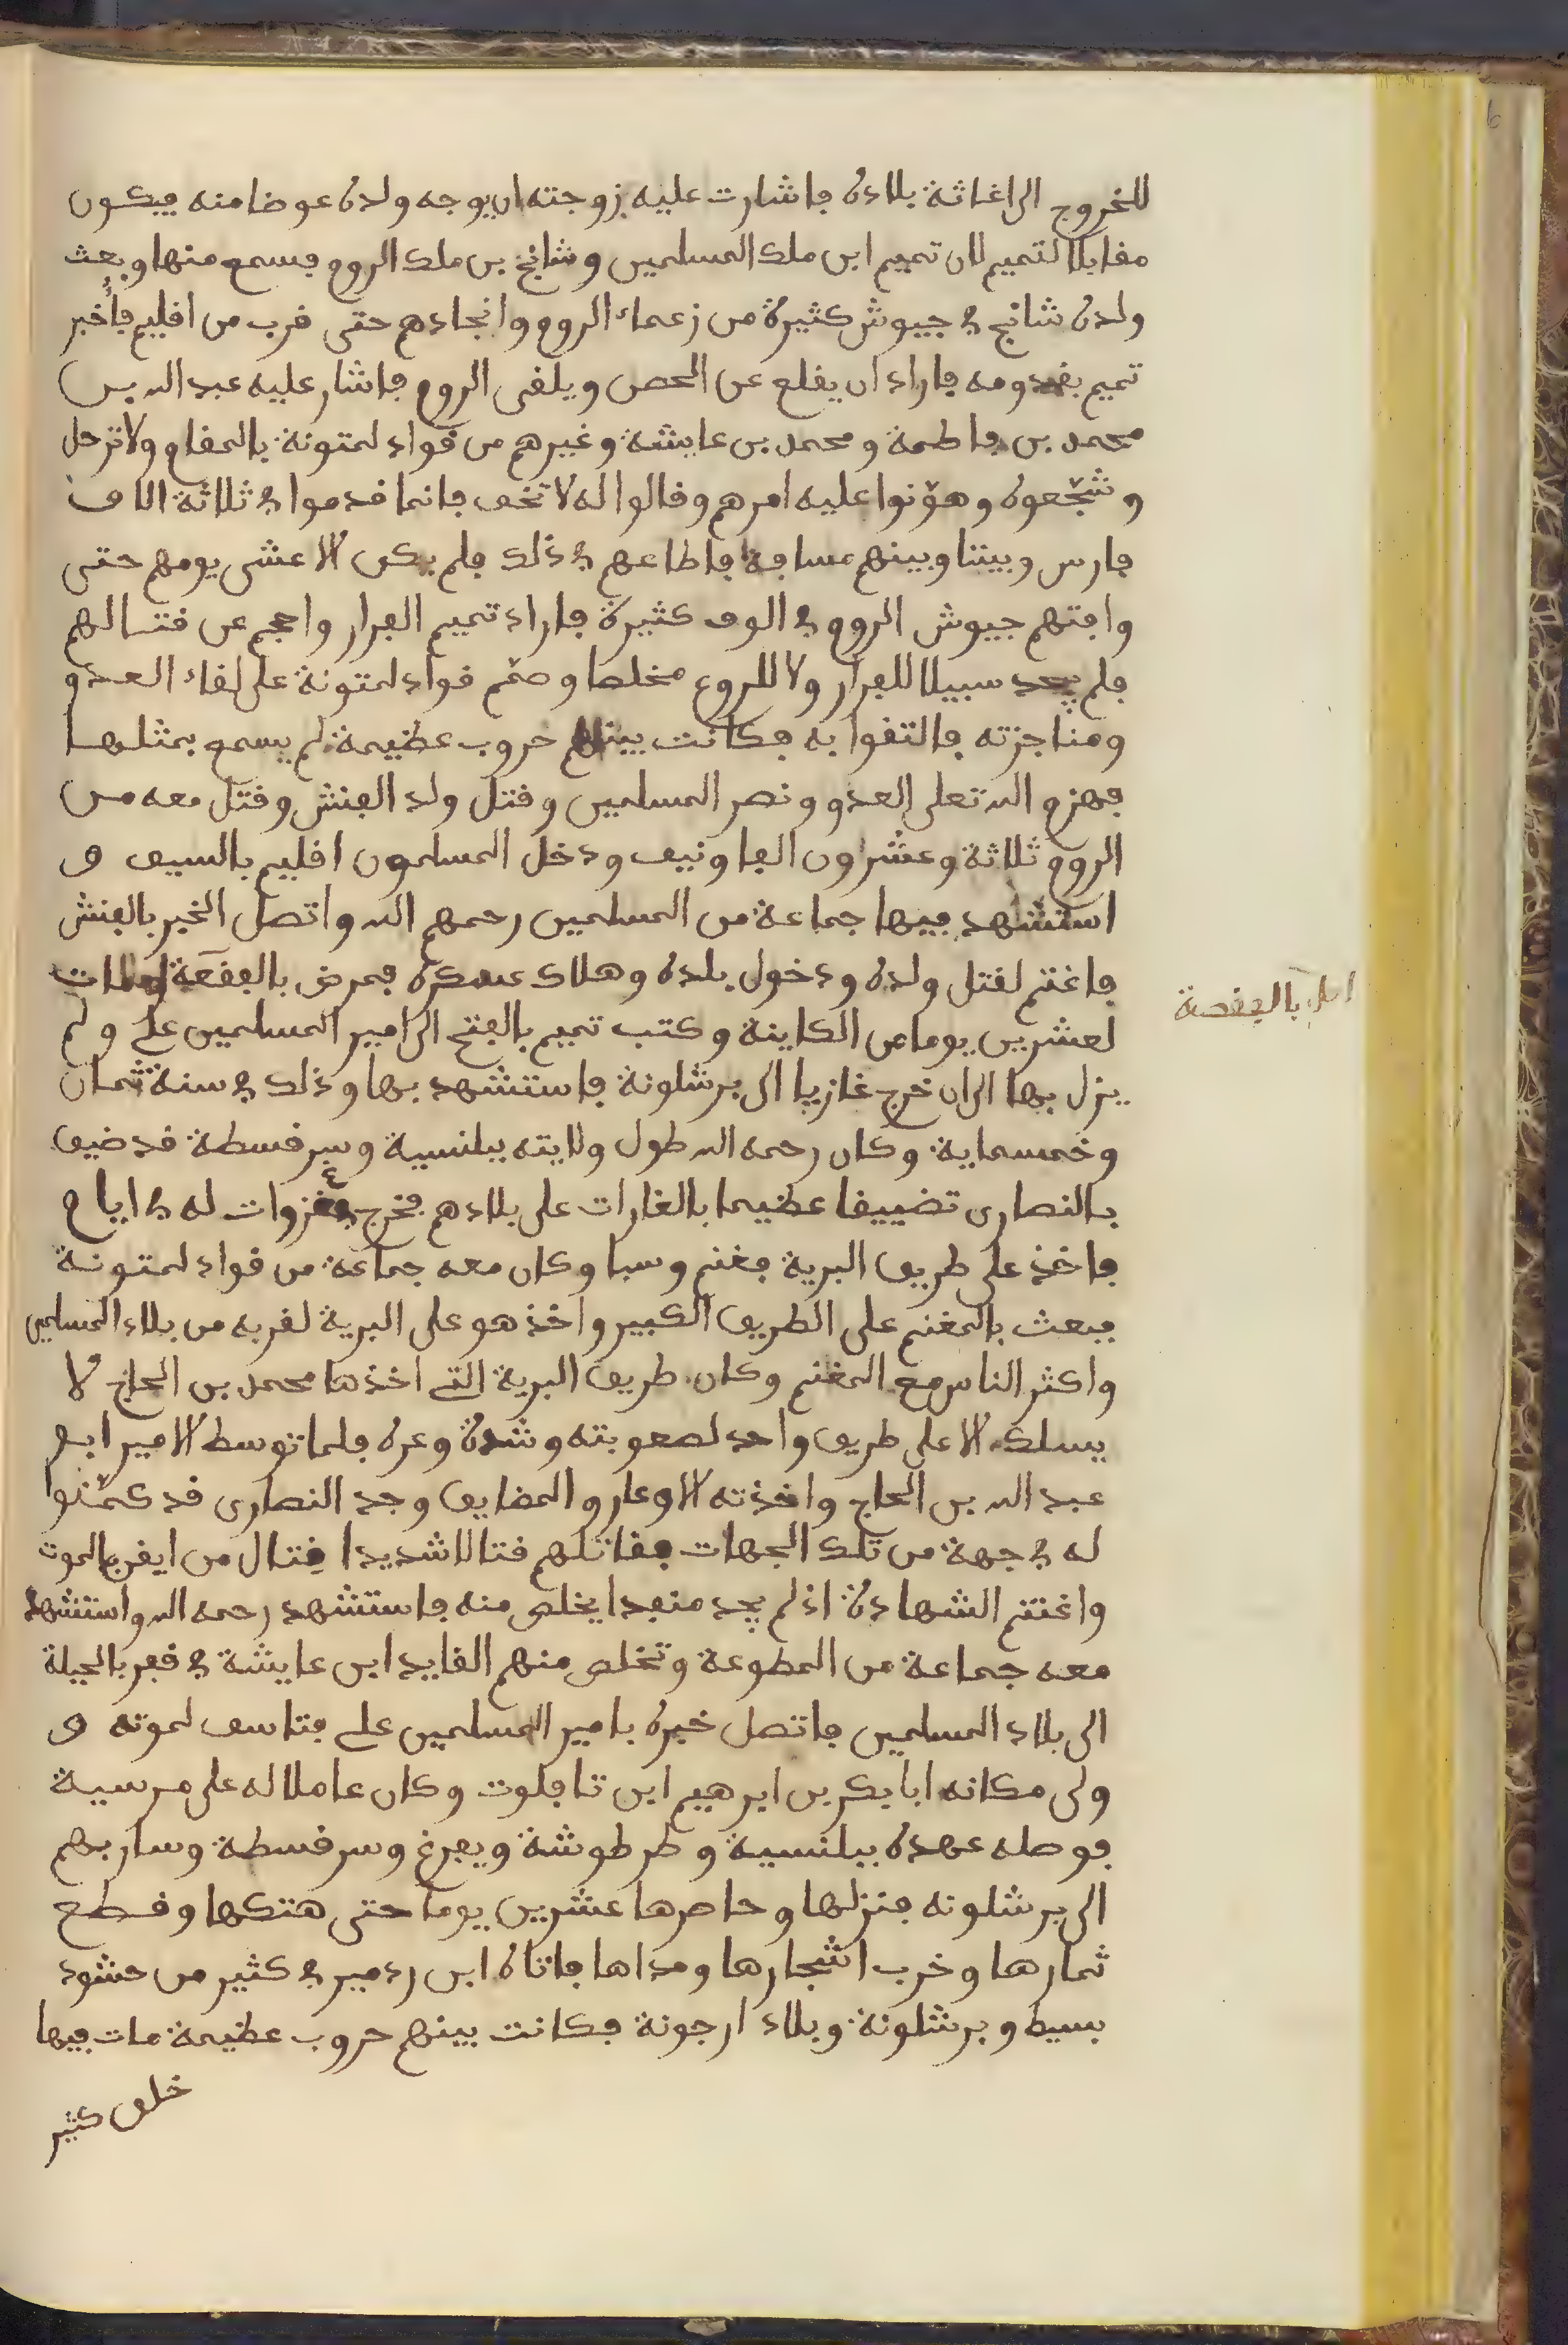 للخروج الى اغاثة بلاده فاشارت عليه زوجته ان يوجه ولده عوضا منه فيكون
مقابلا لتميم لان تميم ابن ملك المسلمين وشانج بن ملك الروم فسمع منها وبعث
ولده شانج في جيوش كثيرة من زعماء الروم وانجادهم حتى قرب من اقليم فأخبر
تميم بقدومه فاراد ان يقلع عن الحصن ويلقى الروم فاشار عليه عبد الله بن
محمد بن فاطمة ومحمد بن عايشة وغيرهم من قواد لمتونة بالمقام ولا ترحل
وشجّعوه وهوّنوا عليه امرهم وقالوا له لا تخف فانما قدموا في ثلاثة الاف
فارس وبيننا وبينهم مسافة فاطاعهم في ذلك فلم يكن الا عشى يومهم حتى
وافتهم جيوش الروم في الوف كثيرة فاراد تميم الفرار واحجم عن قتالهم
فلم يجد سبيلا للفرار ولا للروع مخلصا وصمّم قواد لمتونة على لقاء العدو
ومناجزته فالتقوا به فكانت بينهم حروب عظيمة لم يسمع بمثلها
فهزم الله تعلى العدو ونصر المسلمين وقتل ولد الفنش وقتل معه من
الروم ثلاثة وعشرون الفا ونيف ودخل المسلمون اقليم بالسيف و
استشهد فيها جماعة من المسلمين رحمهم الله واتصل الخبر بالفنش
فاغتم لقتل ولده ودخول بلده وهلاك عسكره فمرض بالفقعة ومات
اصل بالعفصة
لعشرين يوما من الكاينة وكتب تميم بالفتح الى امير المسلمين علي ولم
يزل بها الى ان خرج غازيا الى برشلونة فاستشهد بها وذلك في سنة ثمان
وخمسماية وكان رحمه الله طول ولايته ببلنسية وسرقسطة قد ضيق
بالنصارى تضييقا عظيما بالغارات على بلادهم فخرج في غزوات له في ايام
فاخذ على طريق البرية فغنم وسبا وكان معه جماعة من قواد لمتونة
فبعث بالمغنم على الطريق الكبير واخذ هو على البرية لقربه من بلاد المسلمين
واكثر الناس مع المغنم وكان طريق البرية التي اخذها محمد بن الحاج لا
يسلك الا على طريق واحد لصعوبته وشدة وعره فلما توسط الامير ابو
عبد الله بن الحاج واخذته الاوعار والمضايق وجد النصارى قد كمّنوا
له في جهة من تلك الجهات فقاتلهم قتالا شديدا قتال من ايقن بالموت
واغتنم الشهادة اذ لم يجد منفدا يخلص منه فاستشهد رحمه الله واستشهد
معه جماعة من المطوعة وتخلص منهم القايد ابن عايشة في قفر بالحيلة
الى بلاد المسلمين فاتصل خبره بامير المسلمين علي فتاسف لموته و
ولى مكانه ابا بكر بن ابرهيم ابن تافلوت وكان عاملا له على مرسية
فوصله عهده ببلنسية وطرطوشة ويفرغ وسرقسطة وسار بهم
الى برشلونه فنزلها وحاصرها عشرين يوما حتى هتكها وقطع
ثمارها وخرب اشجارها ومداها فاتاه ابن ردمير في كثير من حشود
بسيط وبرشلونة وبلاد ارجونة فكانت بينهم حروب عظيمة مات فيها
خلق كثير